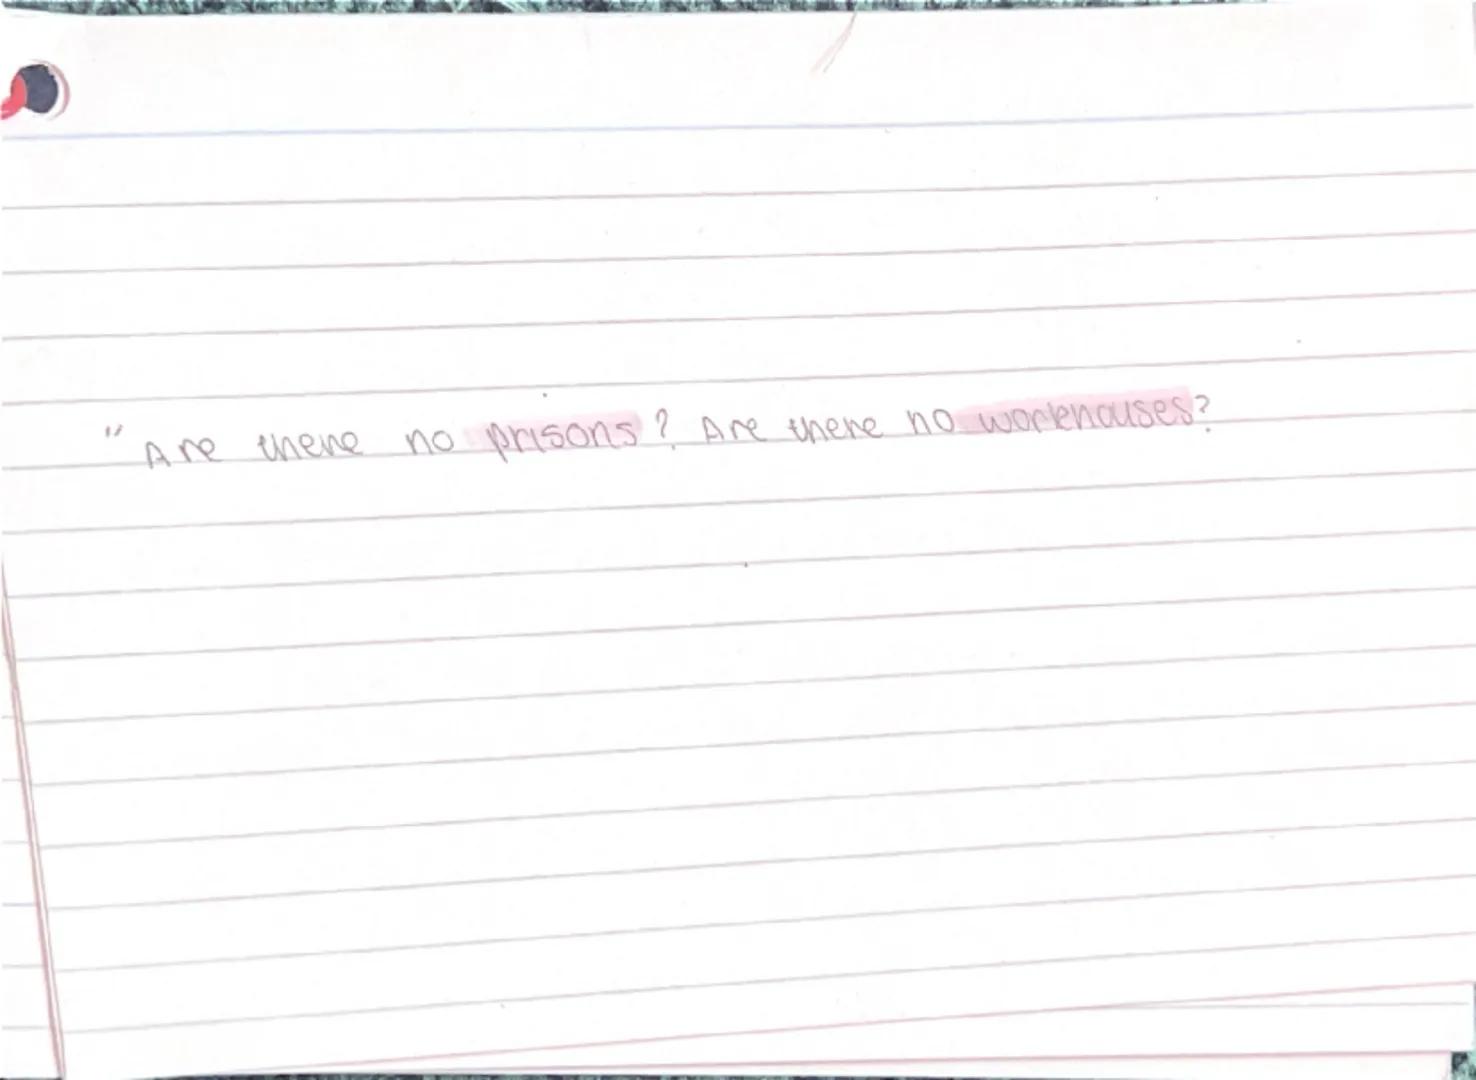 "Are there no prisons? Are there no workhouses?